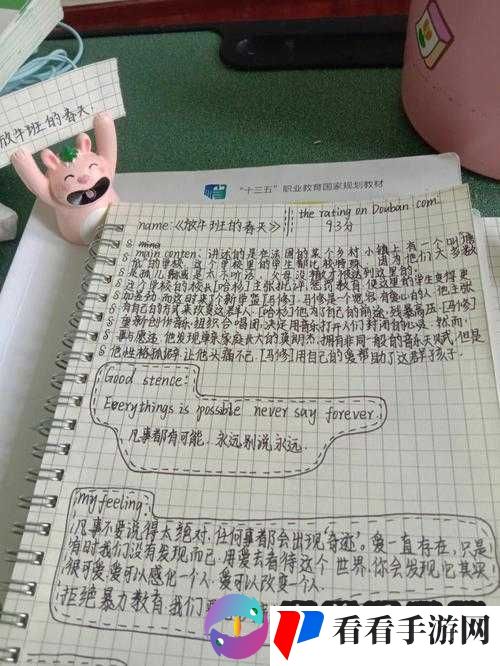 放牛班的春天
"十三五"职业教育国家规划教材
name:《放牛班的春天》
the rating on Douban.com
9.3分
main conten: 讲述的是在法国的某个乡村小镇上有一个叫
的学校,这个学校里的学生都比较特殊,因为他们大多数
是孤儿
这个学校的校长[哈桑]主张批评,惩罚教育,使这里的学生变得更
加恶劣,而这时来了个新学监[马修].马修是个宽容有爱心的人,他主张
有自己的方式来改变这群人,[哈桑]他为了自己的前途,残暴高压.[马修]
重新创作音乐,组织合唱团,决定用音乐打开人们封闭的心灵.然而
事与愿违.他发现单亲家庭长大的莫朗杰,拥有非同一般的音乐天赋,但是
他性格孤僻,让他头痛不已.[马修]用自己的爱帮助了这群子孩子.
Good stence:
Everythings is possble never say forever
凡事都有可能.永远别说永远.
my feeling:
凡事不要说得太绝对.任何事都会出现"奇迹".爱一直存在,只是
有时我们没有发现而已.用爱去看待这个世界.你会发现它其实
很可爱.爱可以感化一个人.爱可以改变一个人.
拒绝暴力教育.我们
看看手游网